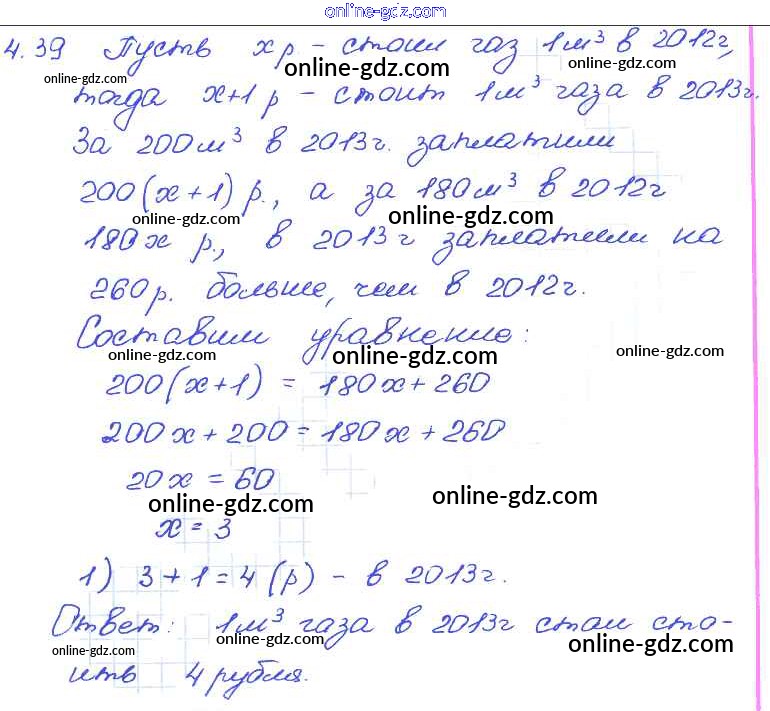 online-gdz.com
4.39 Пусть x р - стоил газ 1м³ в 2012г,
online-gdz.com online-gdz.com online-gdz.com
тогда x+1 р - стоит 1м³ газа в 2013г.
За 200м³ в 2013г. заплатили
200(x+1) р., а за 180м³ в 2012г
online-gdz.com online-gdz.com
180x р., в 2013г заплатили на
260р. больше, чем в 2012г.
Составим уравнение:
online-gdz.com online-gdz.com online-gdz.com
200(x+1) = 180x+260
200x+200=180x+260
20x = 60
online-gdz.com online-gdz.com
x = 3
1) 3+1=4 (р) - в 2013г.
Ответ: 1м³ газа в 2013г стал сто-
online-gdz.com online-gdz.com online-gdz.com
ить 4 рубля.